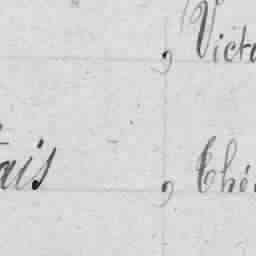 , Victo
ais , Thé